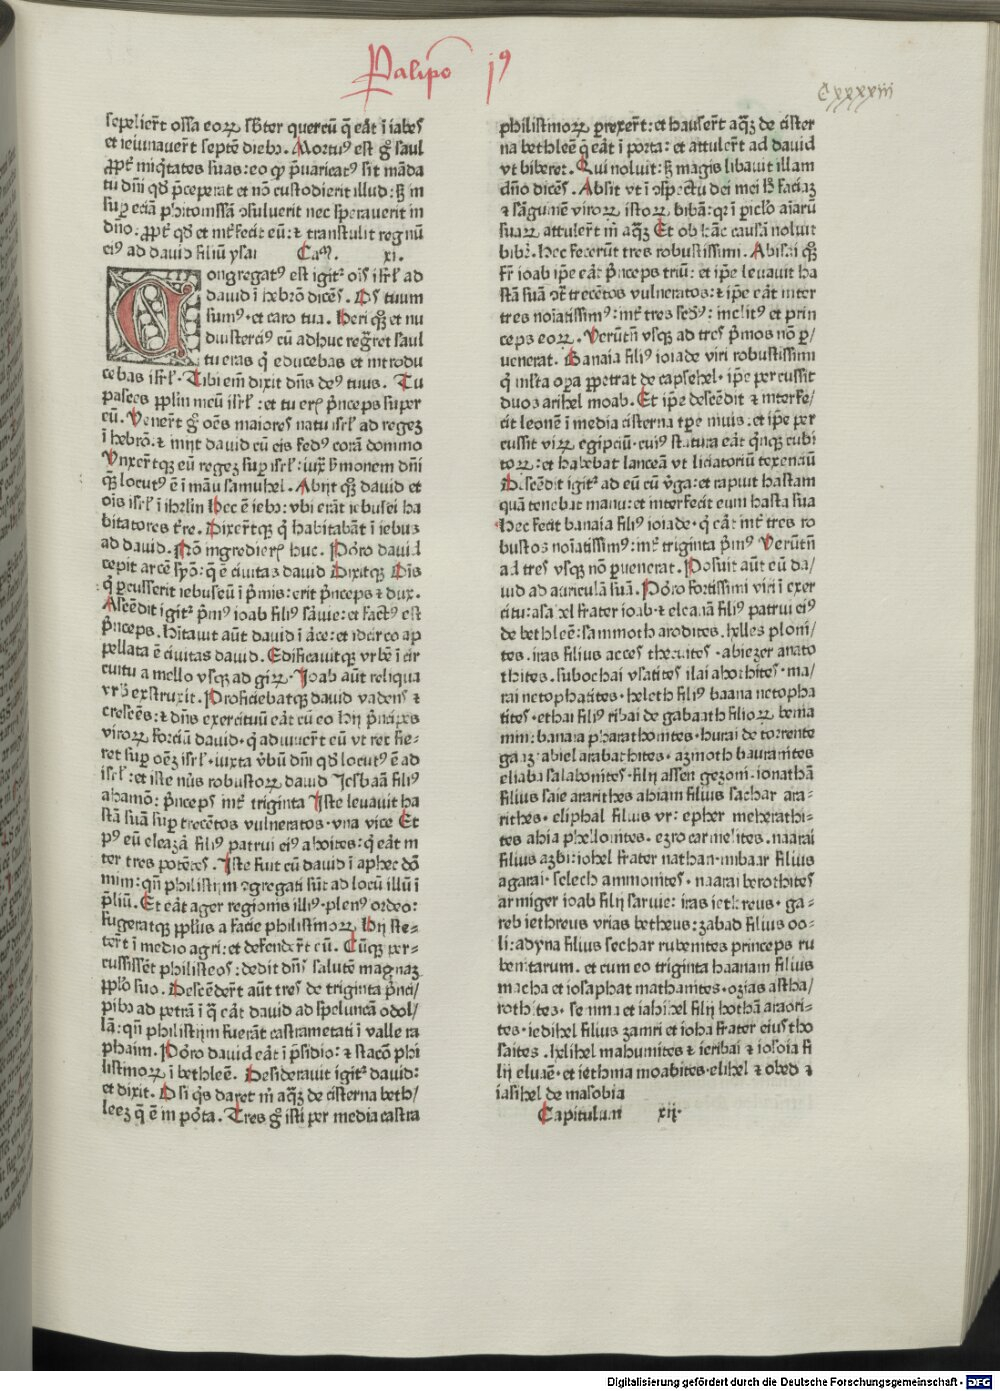 Palipo j⁹
Cxxxxiiii
sepelier̄t ossa eoꝝ sb̄ter quercū q̄ eāt ī iabes
et ieiunauer̄t septē dieb⁹. Mortu⁹ est g̊ saul
ꝓpt̄ iniq̇tates suas: eo ꝙ p̄uaricat⁹ sit māda
tu dn̄i qd̄ p̄ceperat et nō custodierit illud: sꝫ in
suꝑ eciā phitonissā ꝯsuluerit nec sperauerit in
dn̄o: ꝓpt̄ qd̄ et int̄fecit eū: ⁊ transtulit regnū
ei⁹ ad dauid filiū ysai Cam̄. xi.
Congregat⁹ est igit̄ ois isrl̄ ad
dauid ī hebrō dicēs. Os tuum
sum⁹. et caro tua. Heri qꝫ et nu
diusterci⁹ cū adhuc regr̄et saul
tu eras q̇ educebas et introdu
cebas isrl̄. Tibi em̄ dixit dn̄s de⁹ tuus. Tu
pasces ppl̄m meū isrl̄: et tu er̄ p̄nceps super
eū. Vener̄t g̊ oēs maiores natu isrl̄ ad regeꝫ
ī hebrō. ⁊ inijt dauid cū eis fed⁹ corā domino
Vnxer̄tqꝫ eū regeꝫ suꝑ isrl̄: iux̄ ẜmonem dn̄i
qꝫ locut⁹ ē ī māu samuhel. Abijt qꝫ dauid et
ois isrl̄ ī ihrl̄m Hec ē ieb⁹: vbi erāt iebusei ha
bitatores t̄re. Dixer̄tqꝫ q̇ habitabāt ī iebus
ad dauid. Nō ingredier̄ huc. Poꝛo dauid
cepit arcē syō: q̄ ē ciuitas dauid Dixitqꝫ Ois
q̇ ꝑcusserit iebuseū ī p̄mis: erit p̄nceps ⁊ dux.
Ascēdit igit̄ p̄m⁹ ioab fili⁹ sāuie: et fact⁹ est
p̄nceps. Hitauit aūt dauid ī āce: et idcirco ap
pellata ē ciuitas dauid. Edificauitqꝫ vrbē ī cir
cuitu a mello vsqꝫ ad giꝝ. Ioab aūt reliqua
vrb̄ exstruxit. Proficiebatqꝫ dauid vadens ⁊
crescēs: ⁊ dn̄s exercituū eāt cū eo Hij p̄ncipes
viroꝝ forciū dauid. q̇ adiuuer̄t eū vt rex fie-
ret suꝑ oēꝫ isrl̄. iuxta v̄bū dn̄i qd̄ locut⁹ ē ad
isrl̄: et iste nūs robustoꝝ dauid Iesbaā fili⁹
ahamō: p̄nceps int̄ triginta Iste leuauit ha
stā suā suꝑ trecētos vulneratos. vna vice Et
p⁹ eū eleazā fili⁹ patrui ei⁹ ahoites: q̇ eāt in
ter tres potētes. Iste fuit cū dauid ī aphec dō
mim: qn̄ philistijm ꝯgregati sūt ad locū illū ī
p̄liū. Et eāt ager regionis illi⁹. plen⁹ oꝛdeo:
fugeratqꝫ ppl̄us a facie philistinoꝝ Hij ste-
ter̄t ī medio agri: et defender̄t eū. Cūqꝫ per-
cussissēt philisteos: dedit dn̄s salutē magnaꝫ
ppl̄o suo. Descender̄t aūt tres de triginta p̄nci/
pib⁹ ad petrā ī q̄ eāt dauid ad speluncā odol/
lā: qn̄ philistijm fuerāt castrametati ī valle ra
phaim. Poꝛo dauid eāt ī p̄sidio: ⁊ stacō phi
listinoꝝ ī bethleē. Desiderauit igit̄ dauid:
et dixit. O si q̇s daret m̄ aq̄ꝫ de cisterna beth/
leeꝫ q̄ ē in poꝛta. Tres g̊ isti per media castra
philistinoꝝ ꝑrexer̄t: et hauser̄t aq̄ꝫ de cister
na bethleē q̄ eāt ī poꝛta: et attuler̄t ad dauid
vt biberet. Qui noluit: sꝫ magis libauit illam
dn̄o dicēs. Absit vt ī ꝯspectu dei mei h̄ faciaꝫ
⁊ sāguinē viroꝝ istoꝝ bibā: qꝛ ī piclo aiarū
suaꝝ attuler̄t m̄ aq̄ꝫ Et ob hāc causā noluit
biber̄. Hec fecerūt tres robustissimi. Abisai qꝫ
fr̄ ioab ip̄e eāt p̄nceps triū: et ip̄e leuauit ha
stā suā ꝯt̄ trecētos vulneratos: ⁊ ip̄e eāt inter
tres noīatissim⁹: int̄ tres scd̄s: inclit⁹ et prin
ceps eoꝝ. Verūtn̄ vsqꝫ ad tres p̄mos nō ꝑ/
uenerat. Banaia fili⁹ ioiade viri robustissimi
q̇ mlta oꝑa ꝑpetrat de capsehel. ip̄e percussit
duos arihel moab. Et ip̄e descēdit ⁊ interfe/
cit leonē ī media cisterna tꝑe niuis: et ip̄e per
cussit viꝝ egipciū: cui⁹ statura eāt q̇nqꝫ cubi
toꝝ: et habebat lanceā vt liciatoriū texenciū
Descēdit igit̄ ad eū cū v̄ga: et rapuit hastam
quā tenebat manu: et interfecit eum hasta sua
Hec fecit banaia fili⁹ ioiade. q̇ eāt int̄ tres ro
bustos noīatissim⁹: int̄ triginta p̄m⁹ Verūtn̄
ad tres vsqꝫ nō ꝑuenerat. Posuit aūt eū da/
uid ad auriculā suā. Poꝛo foꝛtissimi viri ī exer
citu: asahel frater ioab. ⁊ eleanā fili⁹ patrui ei⁹
de bethleē: sammoth arodites. helles ploni/
tes. iras filius acces thecuites. abiezer anato
thites. subochai vsatites ilai ahohites. ma/
rai netophatites. heleth fili⁹ baana netopha
tites. ethai fili⁹ ribai de gabaath filioꝝ benia
min: banaia pharathonites. hurai de torrente
gaaꝫ. abiel arabathites. azmoth bauramites
eliaba salabonites. filij assen gezoni. ionathā
filius saie ararithes ahiam filius sachar ara-
rithes. eliphal filius vr: epher meherathi-
tes ahia phellonites. ezro carmelites. naarai
filius azbi: iohel frater nathan. mibaar filius
agarai. selech ammonites. naarai berothites
armiger ioab filij saruie: iras iethreus. ga-
reb iethreus vrias betheus: zabad filius oo-
li: adyna filius sechar rubenites princeps ru
benitarum. et cum eo triginta haanam filius
macha et iosaphat mathanites. ozias astha/
rothites. semma et iahihel filij hothā araori-
tes. iedihel filius zamri et ioha frater eius tho
saites. helihel mahumites ⁊ ieribai ⁊ iosoia fi
lij eluaē. et iethma moabites. elihel ⁊ obed ⁊
iasihel de masobia
Capitulum xij.
Digitalisierung gefördert durch die Deutsche Forschungsgemeinschaft - DFG